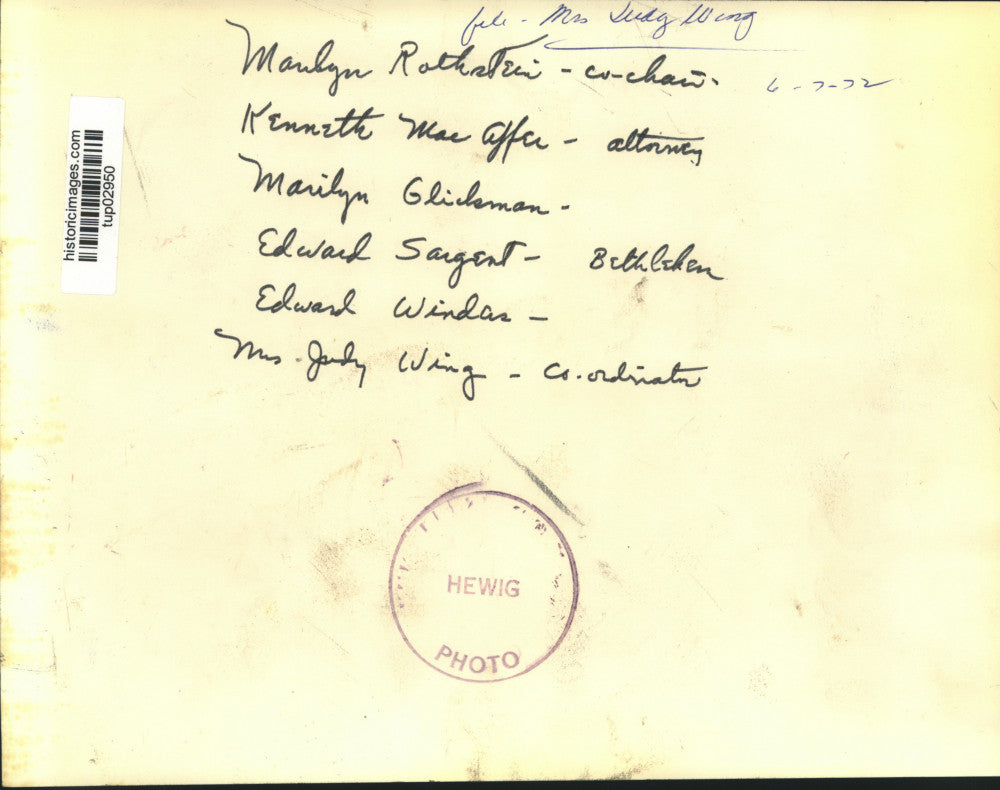 file - Mrs Judy Wing
Marilyn Rothstein - co-chair.
6-7-72
Kenneth Mac Affer - attorney
Marilyn Glickman -
Edward Sargent - Bethlehem
Edward Windas -
Mrs. Judy Wing - co-ordinator
historicimages.com
tup02950
HEWIG
PHOTO